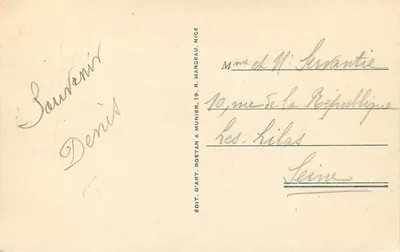 Souvenir
Denis
ÉDIT. D'ART. ROSTAN & MUNIER, 19, R. MARCEAU, NICE
Mme et Mr Servantie
10, rue de la République
Les Lilas
Seine